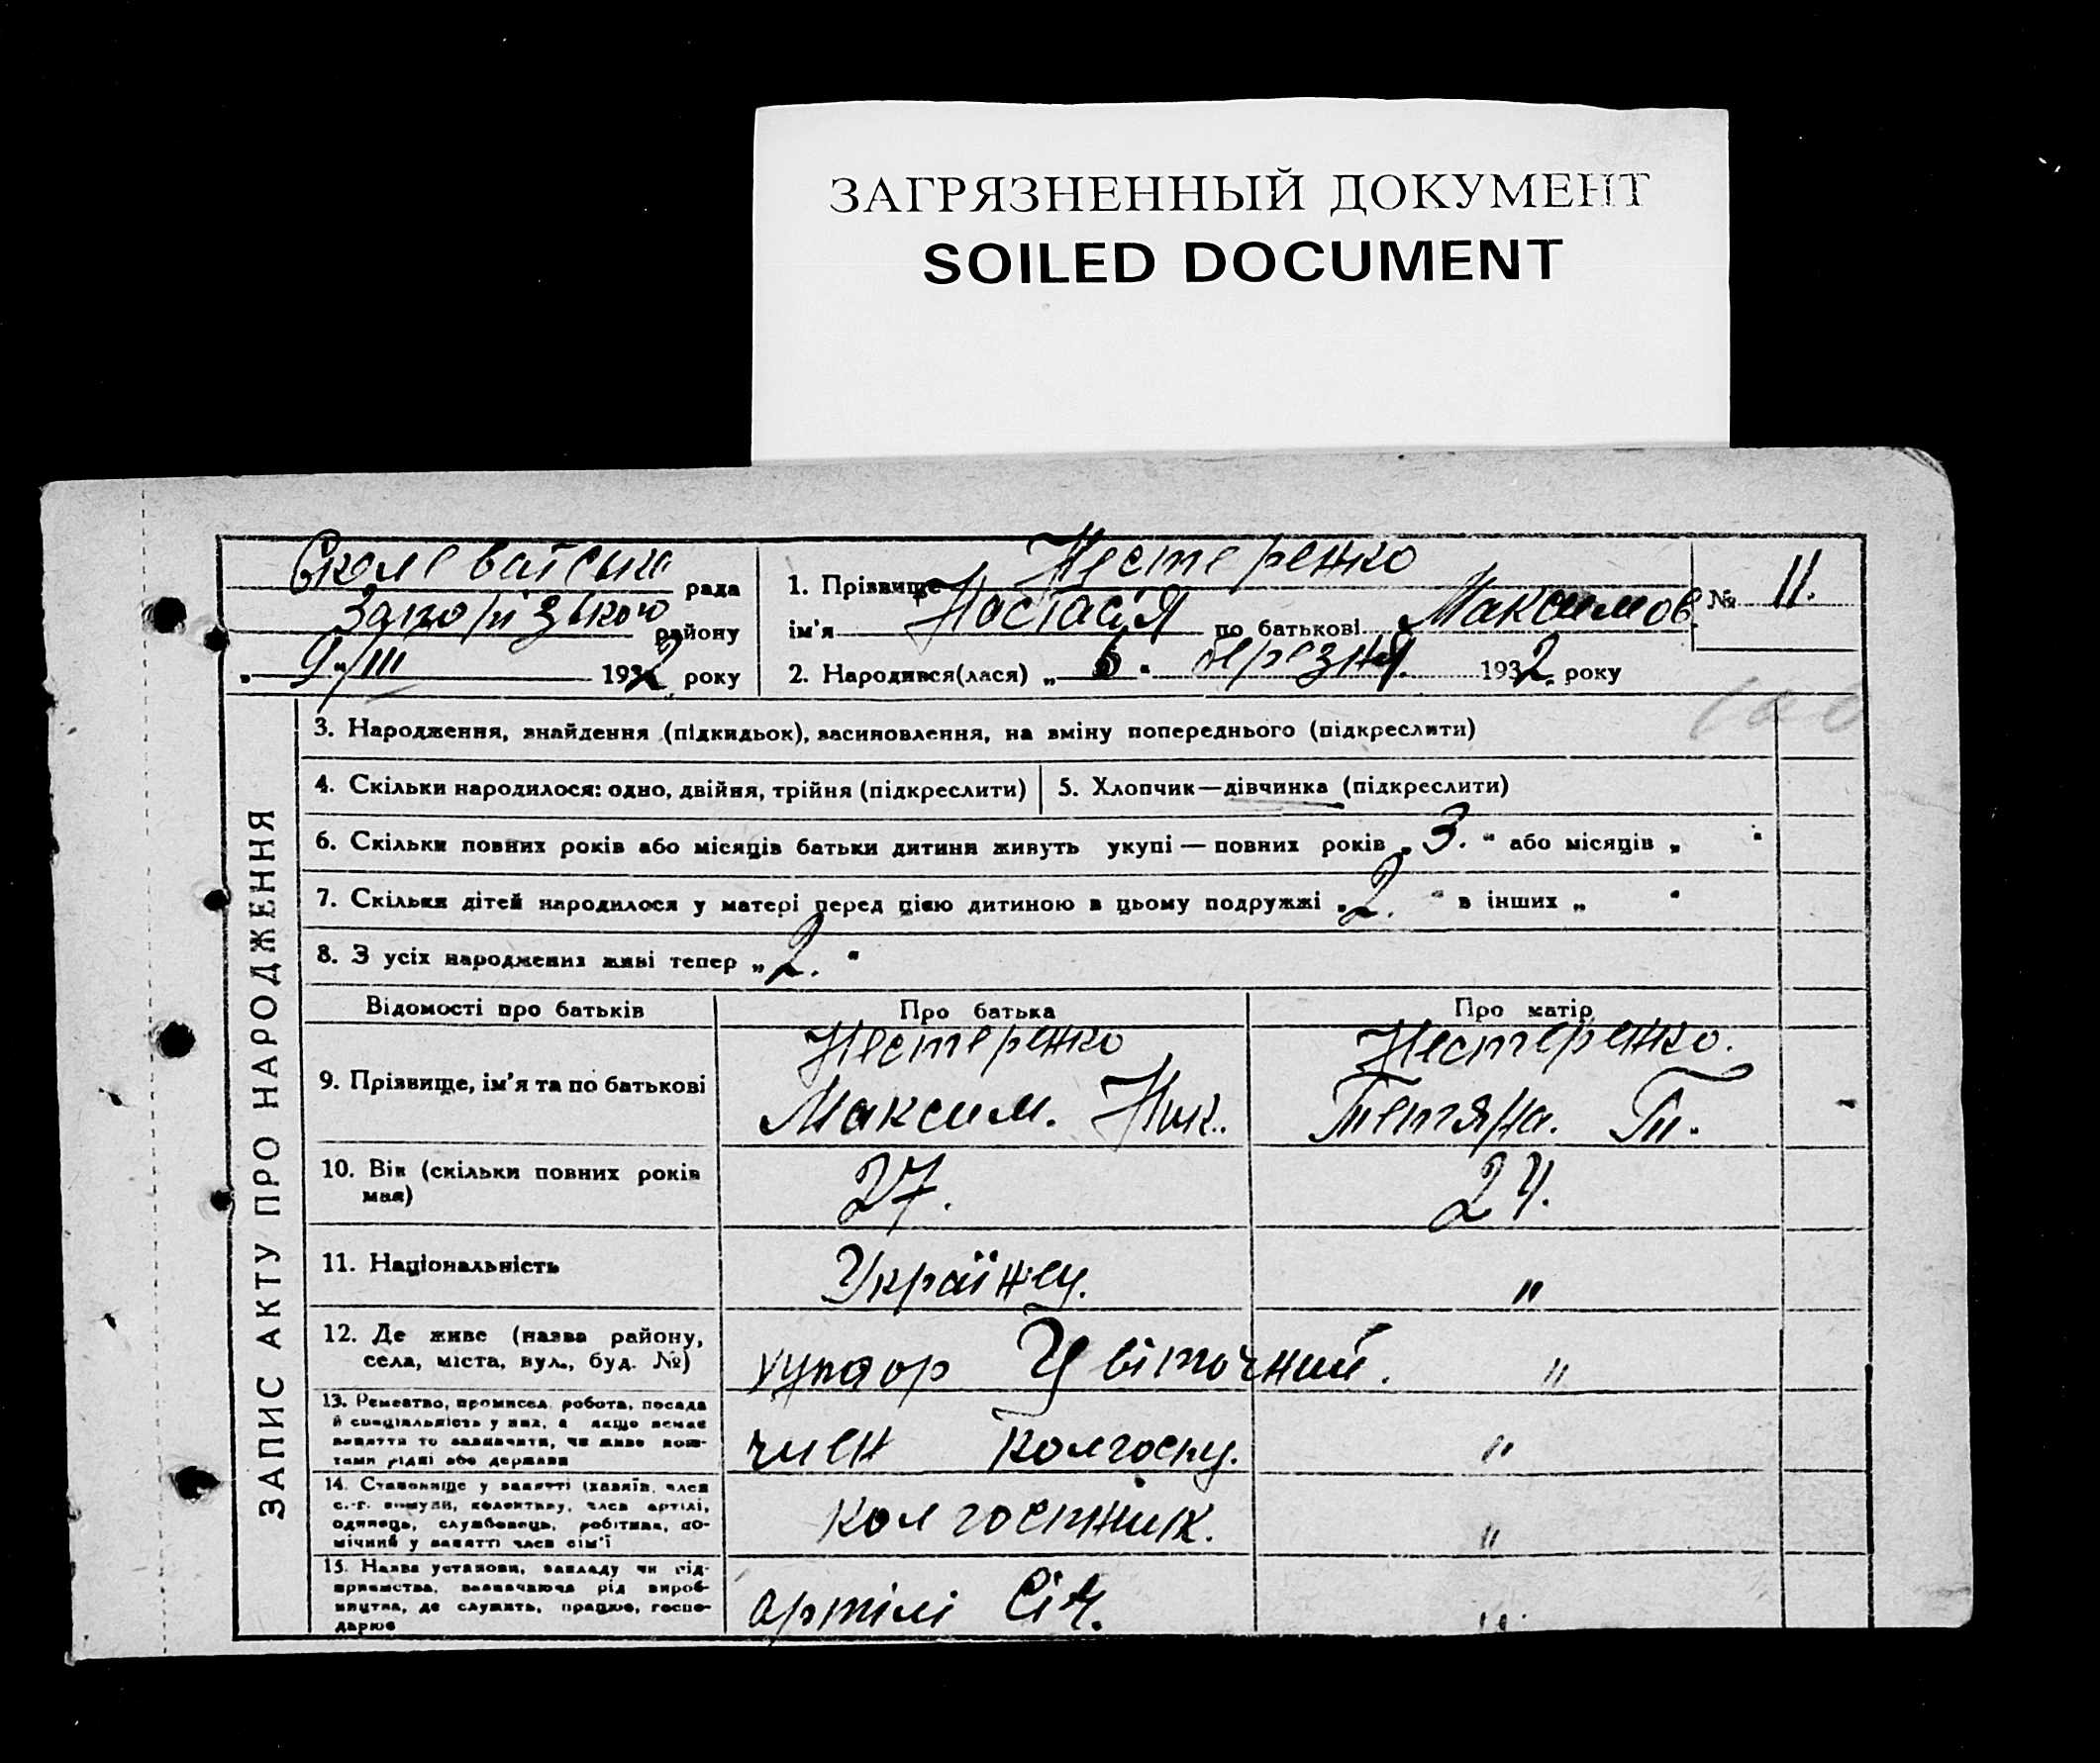 ЗАГРЯЗНЕННЫЙ ДОКУМЕНТ
SOILED DOCUMENT
рада
району
„ 9/III 1932 року
1. Прізвище Нестеренко
ім'я Настасія по батькові Максимов.
№ 11.
2. Народився(лася) „ 6 " березня. 1932. року
ЗАПИС АКТУ ПРО НАРОДЖЕННЯ
3. Народження, знайдення (підкидьок), засиновлення, на зміну попереднього (підкреслити)
4. Скільки народилося: одно, двійня, трійня (підкреслити)
5. Хлопчик—дівчинка (підкреслити)
6. Скільки повних років або місяців батьки дитини живуть укупі — повних років „ 3. " або місяців „ "
7. Скільки дітей народилося у матері перед цією дитиною в цьому подружжі „ 2. " в інших „ "
8. З усіх народжених живі тепер „ 2. "
Відомості про батьків
Про батька
Про матір
9. Прізвище, ім'я та по батькові
Нестеренко
Максим. Ник.
Нестеренко.
Тетяна.
10. Вік (скільки повних років має)
27.
24.
11. Національність
Українец.
"
12. Де живе (назва району,
села, міста, вул., буд. №)
хутор Цвіточний.
"
13. Ремество, промисел, робота, посада
й спеціальність у них, а якщо немає
заняття то зазначити, чи живе кош-
тами рідні або держави
член колгоспу.
"
14. Становище у занятті (хазяїн, член
с.-г. комуни, колективу, член артілі,
одинець, службовець, робітник, по-
мічний у занятті член сім'ї
колгоспник.
"
15. Назва установи, закладу чи під-
приємства, зазначаюча рід вироб-
ництва, де служить, працює, госпо-
дарює
артілі Січ.
"